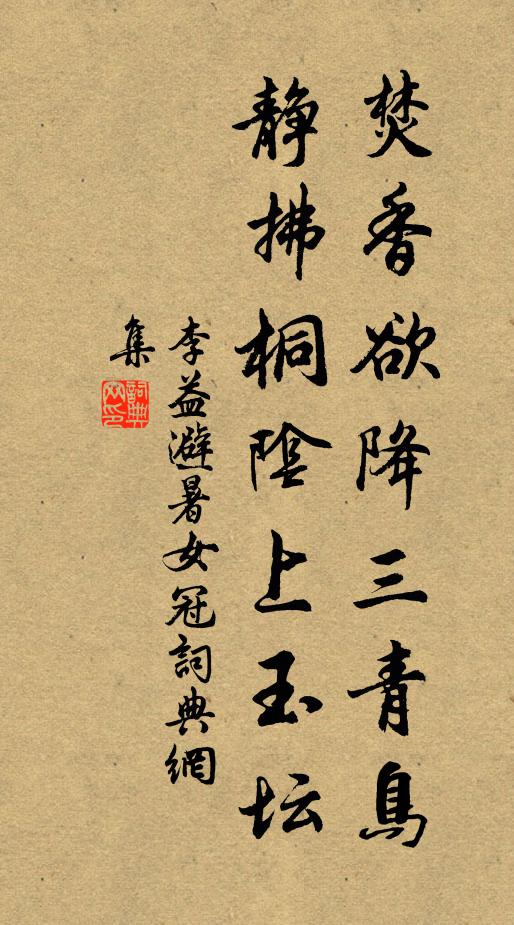 焚香欲降三青鳥
静拂桐陰上玉坛
李益避暑女冠詞典網
集
詞典網印